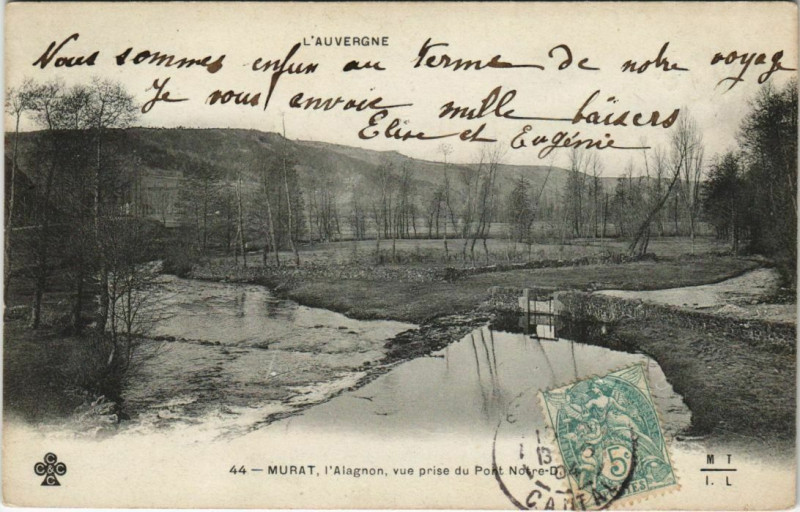 L'AUVERGNE
Nous sommes enfin au terme de notre voyage
Je vous envoie mille baisers
Elise et Eugénie
44 — MURAT, l'Alagnon, vue prise du Pont Notre-D
M T
I. L
CCCC
5c
CANTAL